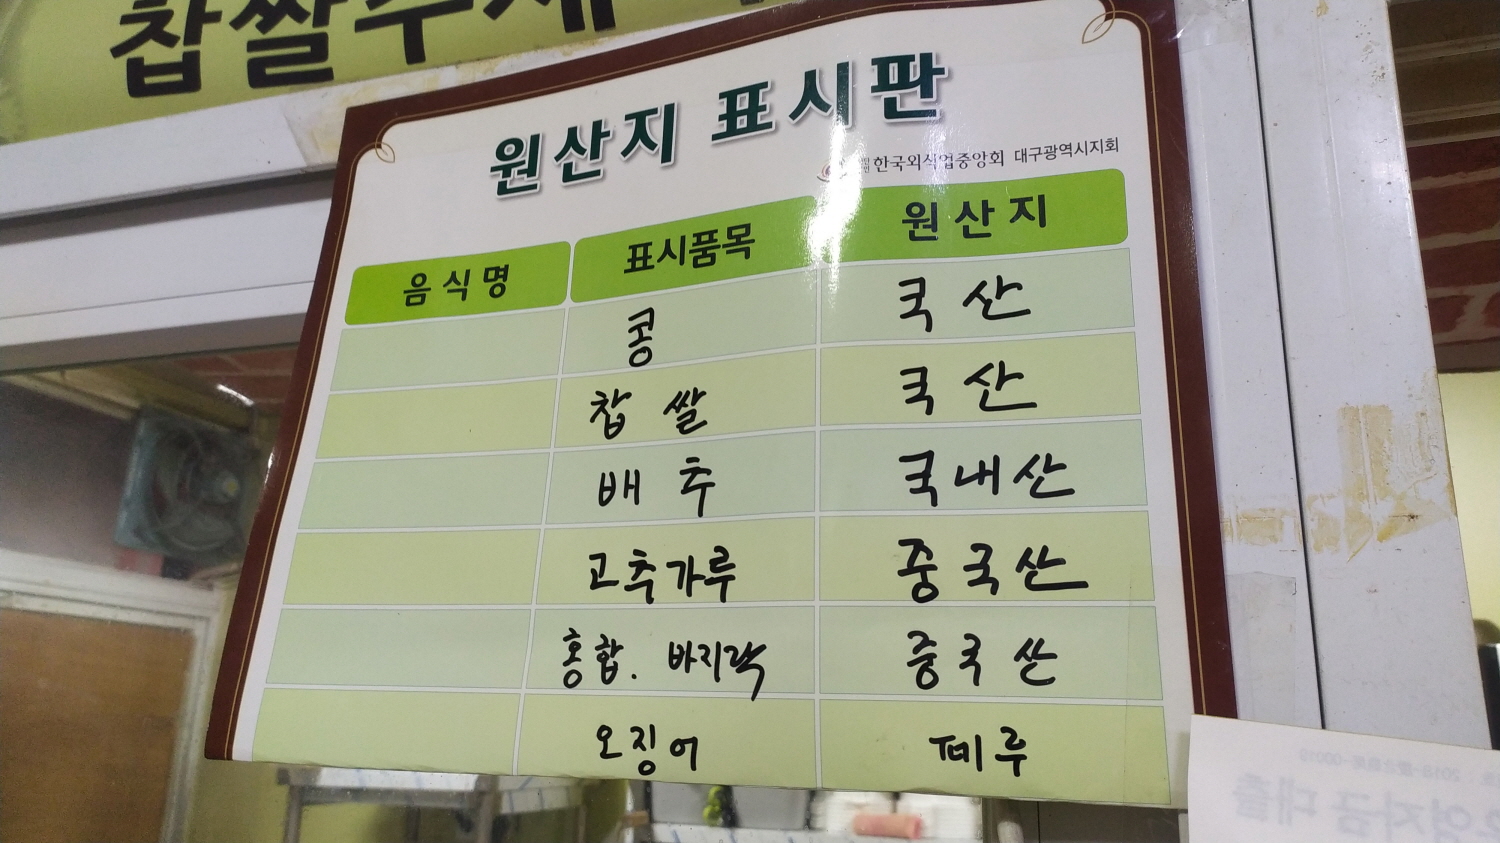 찹쌀수제
원산지 표시판
한국외식업중앙회 대구광역시지회
음식명 표시품목 원산지
콩 국산
찹쌀 국산
배추 국내산
고추가루 중국산
홍합. 바지락 중국산
오징어 페루